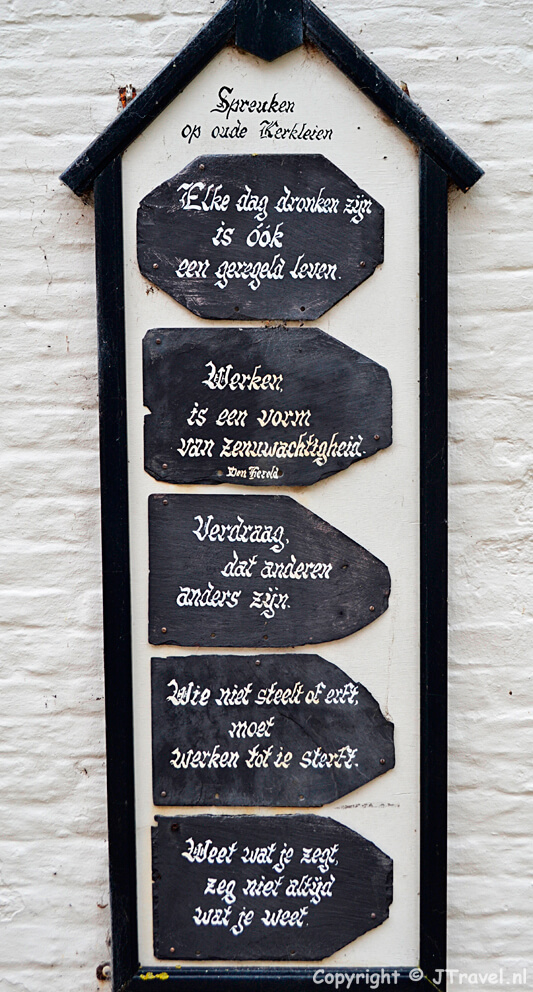 Spreuken
op oude Kerkleien
Elke dag dronken zijn
is óók
een geregeld leven.
Werken,
is een vorm
van zenuwachtigheid.
Don Herold
Verdraag,
dat anderen
anders zijn.
Wie niet steelt of erft,
moet
werken tot ie sterft.
Weet wat je zegt,
zeg niet altijd
wat je weet.
Copyright © JTravel.nl